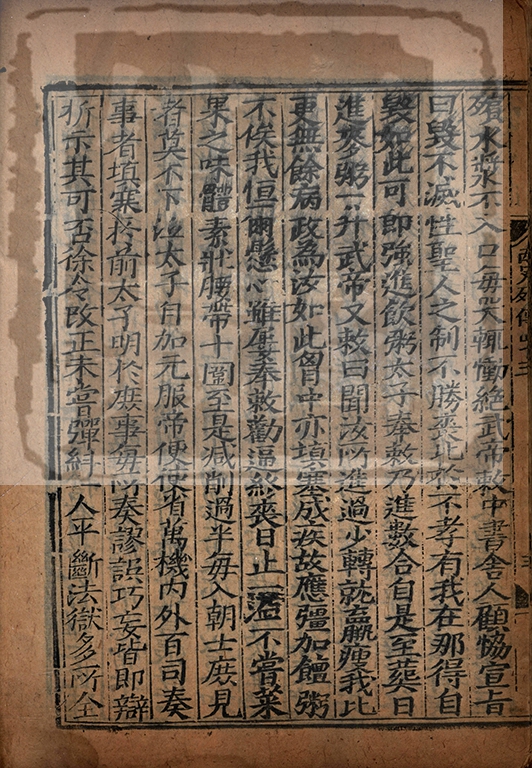 殯水漿不入口每哭輒慟絕武帝敕中書舍人顧恊宣旨
曰毀不滅性聖人之制不勝喪比於不孝有我在那得自
毀如此可即強進飲粥太子奉敕乃進數合自是至葬日
進麥粥一升武帝又敕曰聞汝所進過少轉就羸瘦我比
更無餘病政為汝如此胷中亦填塞成疾故應彊加饘粥
不俟我恒爾懸心雖屢奉敕勸逼終喪日止一溢不嘗菜
果之味體素壯腰帶十圍至是減削過半每入朝士庶見
者莫不下泣太子自加元服帝便使省萬機內外百司奏
事者填塞於前太子明於庶事每所奏謬誤巧妄皆即辯
析示其可否徐令改正未嘗彈糾一人平斷法獄多所全